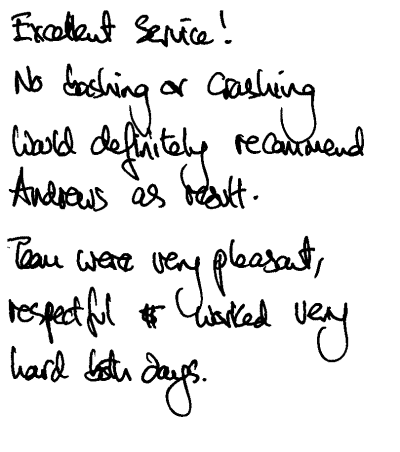 Excellent Service!
No bashing or crashing
Would definitely recommend
Andrews as result.
Team were very pleasant,
respectful & worked very
hard both days.